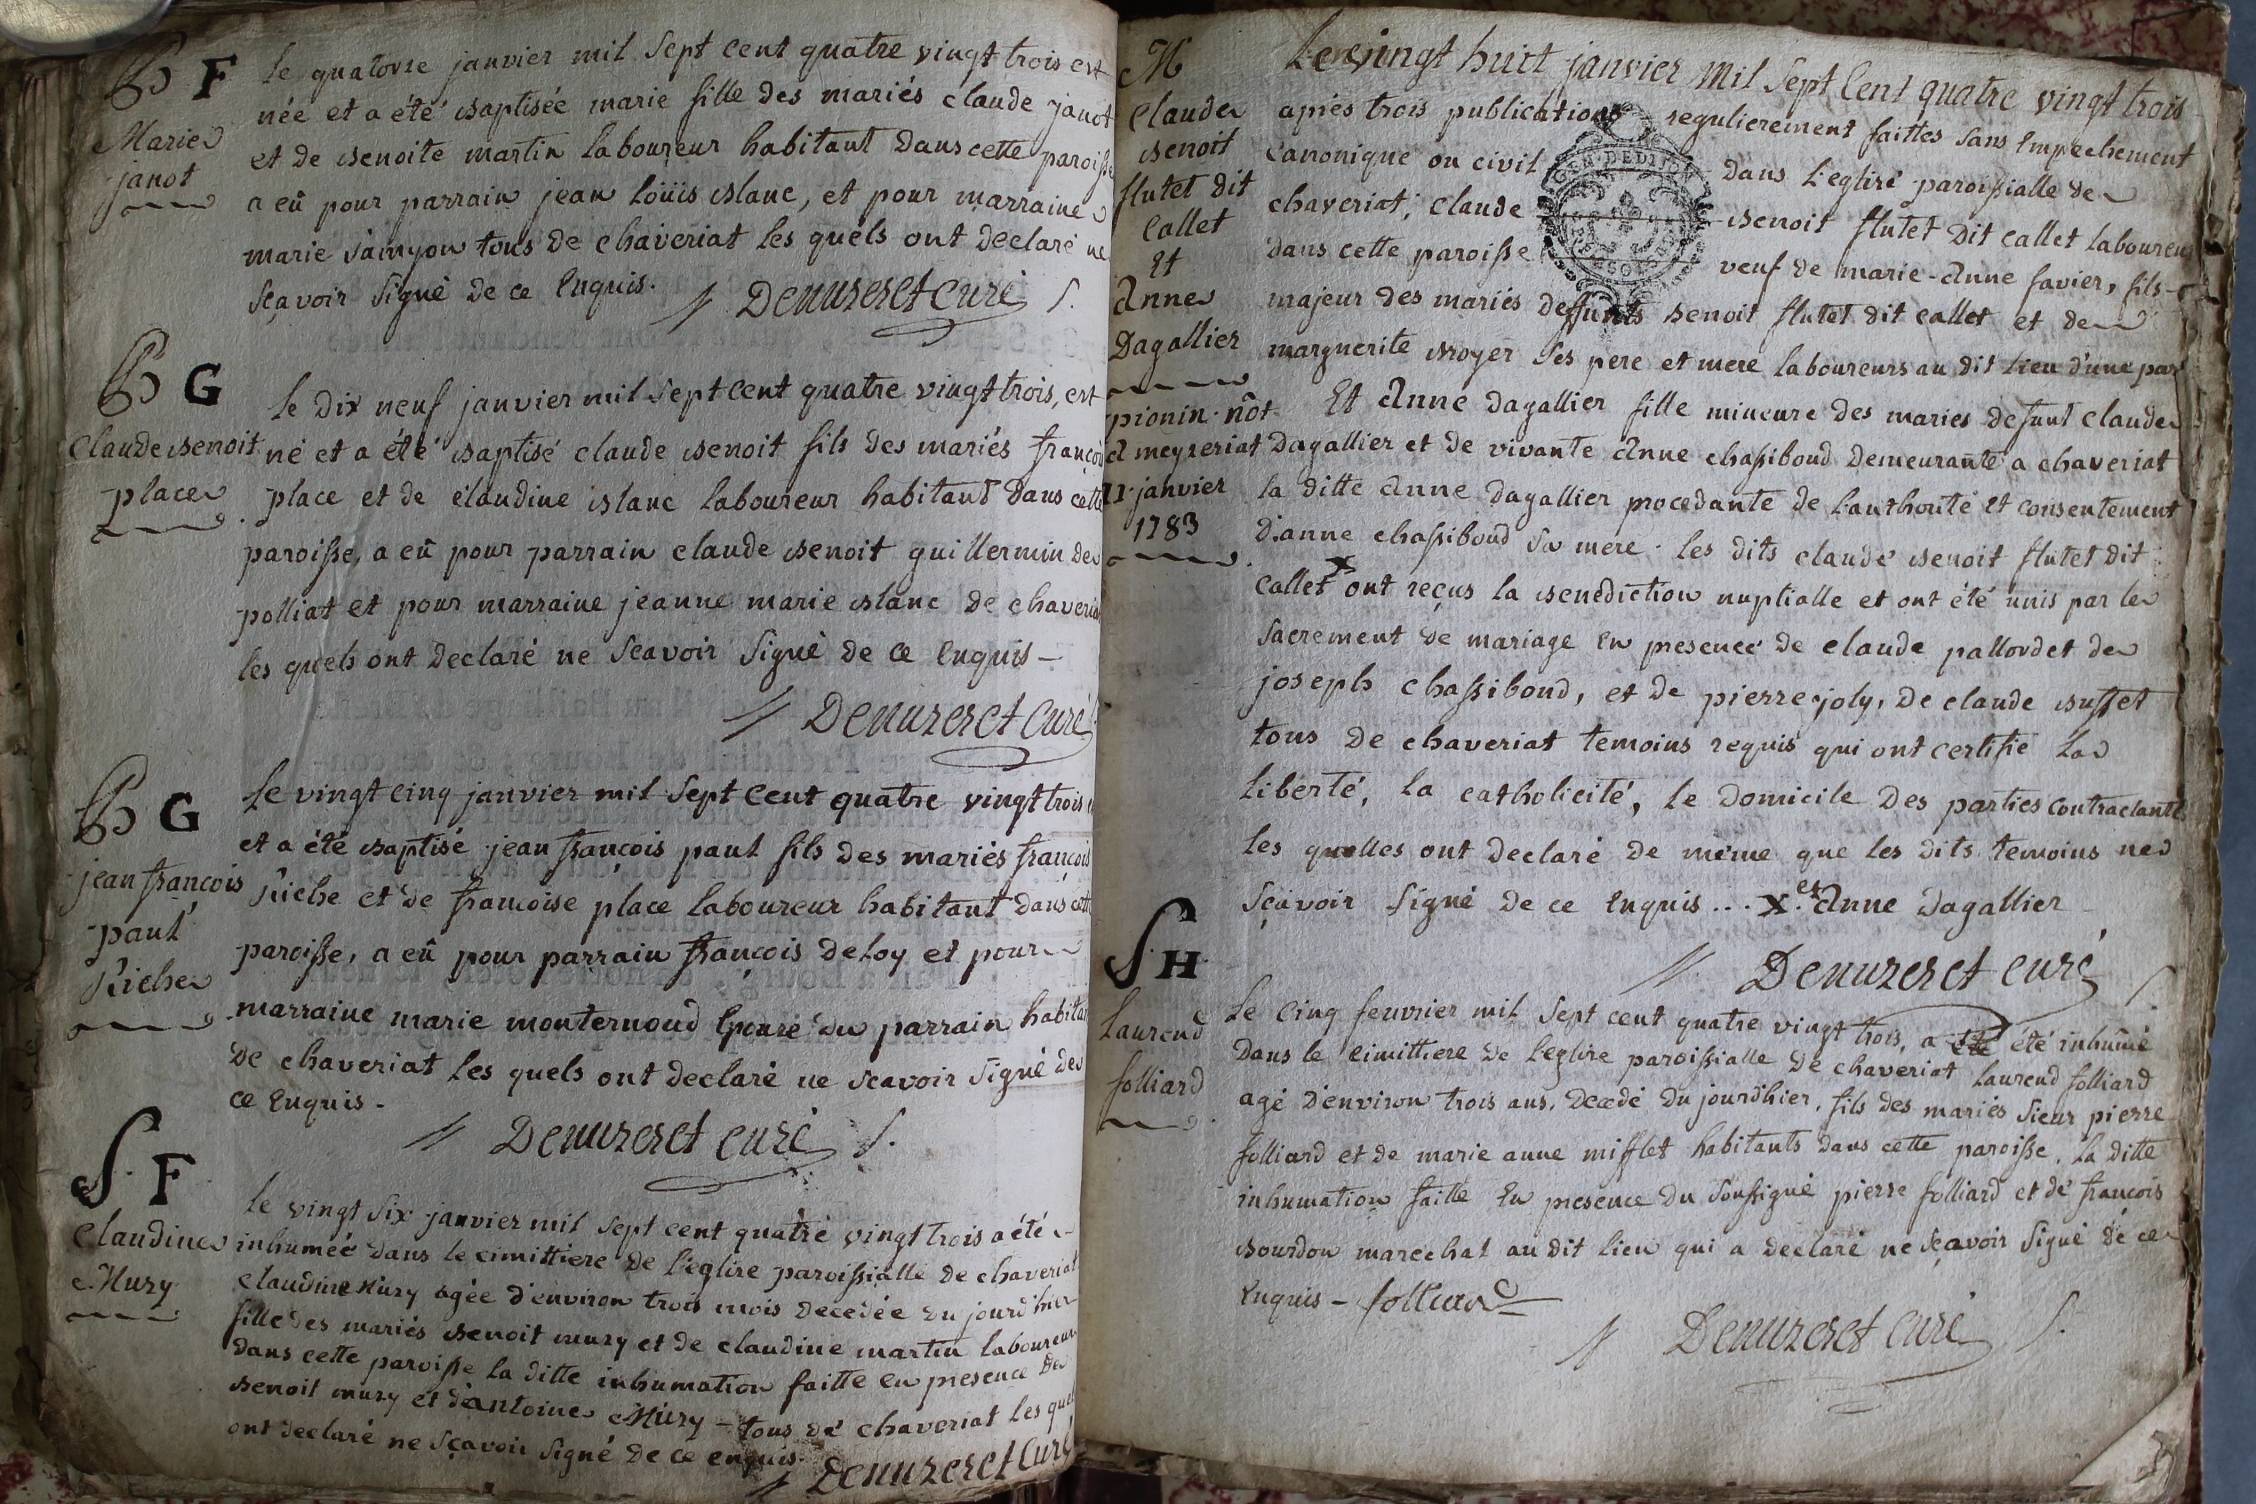 B F
Marie
janot
Le quatorze janvier mil sept cent quatre vingt trois est
née et a été baptisée marie fille des mariés claude janot
et de benoite martin laboureur habitant dans cette paroisse
a eû pour parrain jean loüis blanc, et pour marraine
marie samyon tous de chaveriat les quels ont declaré ne
sçavoir signé de ce enquis. // Denuzeret curé
B G
Claude benoit
place
Le dix neuf janvier mil sept cent quatre vingt trois, est
né et a été baptisé claude benoit fils des mariés françois
place et de claudine blanc laboureur habitant dans cette
paroisse, a eû pour parrain claude benoit guillermin de
polliat et pour marraine jeanne marie blanc de chaveriat
les quels ont declaré ne sçavoir signé de ce enquis —
// Denuzeret curé
B G
jean françois
paul
Riche
Le vingt cinq janvier mil sept cent quatre vingt trois
et a été baptisé jean françois paul fils des mariés françois
Riche et de françoise place laboureur habitant dans cette
paroisse, a eû pour parrain françois deloy et pour
marraine marie monternoud epouse du parrain habitant
de chaveriat les quels ont declaré ne sçavoir signé de
ce enquis -
// Denuzeret curé
S. F
Claudine
Mury
Le vingt six janvier mil sept cent quatre vingt trois a été
inhumée dans le cimittiere de l'eglise paroissialle de chaveriat
claudine Mury agée d'environ trois mois decedée du jourd'hier
fille des mariés benoit mury et de claudine martin laboureur
dans cette paroisse la ditte inhumation faitte en presence de
benoit mury et d'antoine Mury — tous de chaveriat les quels
ont declaré ne sçavoir signé de ce enquis.
// Denuzeret curé
M
Claude
benoit
flutet dit
Callet
Et
Anne
Dagallier
pionin not
a meyzeriat
11 janvier
1783
Le vingt huit janvier mil sept cent quatre vingt trois
après trois publications regulierement faittes sans empechement
canonique ou civil dans l'eglise paroissialle de
chaveriat, claude benoit flutet dit callet laboureur
dans cette paroisse veuf de marie-anne favier, fils
majeur des mariés deffunts benoit flutet dit callet et de
marguerite broyer ses pere et mere laboureurs au dit lieu d'une part
Et Anne dagallier fille mineure des maries defunt claude
Dagallier et de vivante Anne chassiboud demeurante a chaveriat
la ditte Anne dagallier procedante de l'authorité et consentement
d'anne chassiboud sa mere. les dits claude benoit flutet dit
callet x ont reçus la benediction nuptialle et ont été unis par le
sacrement de mariage en presence de claude pallordet de
joseph chassiboud, et de pierre joly, de claude buffet
tous de chaveriat temoins requis qui ont certifié la
liberté, la catholicité, le domicile des parties contractantes
les quelles ont declaré de même que les dits temoins ne
sçavoir signé de ce enquis ... x. et Anne dagallier
// Denuzeret curé
S. H.
Laurend
folliard
Le cinq feuvrier mil sept cent quatre vingt trois, a été été inhumé
dans le cimittiere de l'eglise paroissialle de chaveriat laurend folliard
agé d'environ trois ans, decedé du jourd'hier, fils des mariés sieur pierre
folliard et de marie anne mifflet habitants dans cette paroisse, la ditte
inhumation faitte en presence du soussigné pierre folliard et de françois
bourdon marechal au dit lieu qui a declaré ne sçavoir signé de ce
enquis — folliard
// Denuzeret curé